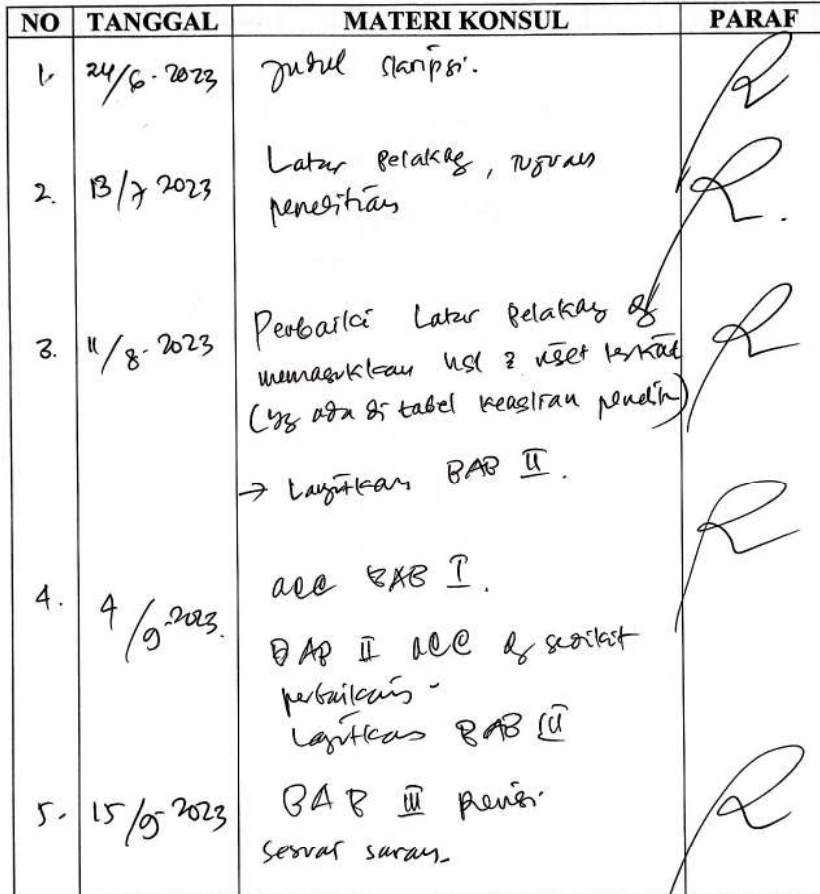 NO TANGGAL MATERI KONSUL PARAF
1. 24/6-2023 Judul skripsi.
2. 13/7 2023 Latar Belakag, tujuan
penelitian
3. 11/8-2023 Perbaiki Latar Belakag dg
memasukkan hsl 2 riset terkait
(yg ada di tabel keaslian penelit)
→ Lanjutkan BAB II.
4. 4/9-2023. acc BAB I.
BAB II acc dg sedikit
perbaikan -
Lanjutkan BAB III
5. 15/9-2023 BAB III revisi
sesuai saran.